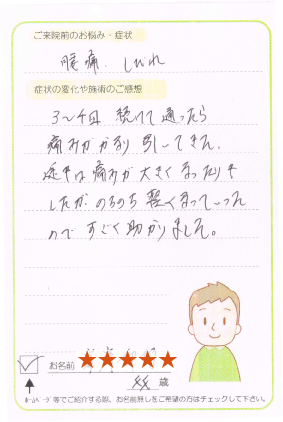 ご来院前のお悩み・症状
腰痛、しびれ
症状の変化や施術のご感想
3〜4回 続けて通ったら
痛みがかなり引いてきた。
途中は痛みが大きくなったりも
したが のちのち 軽くなっていった
ので すごく助かりました。
お名前 ★★★★★
歳
ホームページ等でご紹介する際、お名前無しをご希望の方はチェックして下さい。